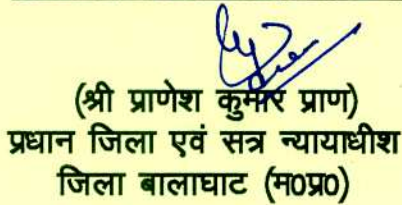 (श्री प्राणेश कुमार प्राण)
प्रधान जिला एवं सत्र न्यायाधीश
जिला बालाघाट (म0प्र0)